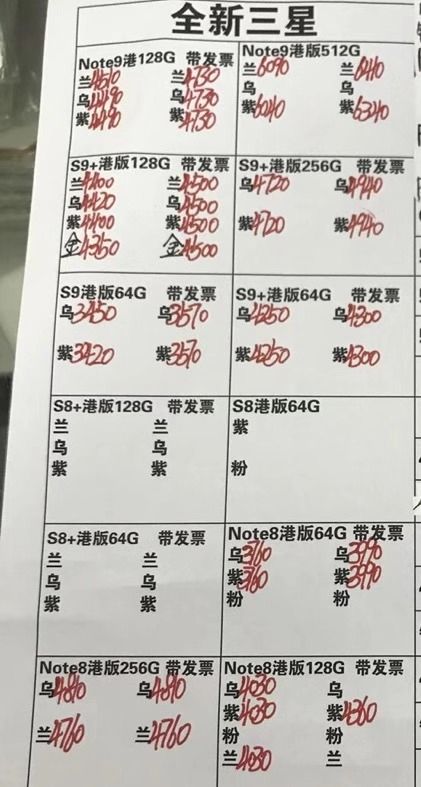 全新三星
Note9港128G 带发票
兰4510 兰4730
乌4490 乌4730
紫4490 紫4730
Note9港版512G
兰6090 兰6410
乌
紫6040 紫6340
S9+港版128G 带发票
兰4400 兰4500
乌4420 乌4500
紫4400 紫4500
金4350 金4500
S9+港版256G 带发票
乌4720 乌4940
紫4720 紫4940
S9港版64G 带发票
乌3450 乌3570
紫3420 紫3570
S9+港版64G 带发票
乌4250 乌4300
紫4250 紫4300
S8+港版128G 带发票
兰 兰
乌 乌
紫 紫
S8港版64G
紫
粉
S8+港版64G 带发票
兰 兰
乌 乌
紫 紫
Note8港版64G 带发票
乌3760 乌3990
紫3760 紫3990
粉 粉
Note8港版256G 带发票
乌4890 乌4890
兰4760 兰4760
Note8港版128G 带发票
乌4030 乌
紫4030 紫4360
粉 粉
兰4030 兰